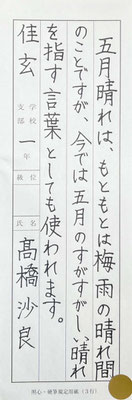 五月晴れは、もともとは梅雨の晴れ間
のことですが、今では五月のすがすがしい晴れ
を指す言葉としても使われます。
学校
支部
一年
級位
氏名
髙橋沙良
佳玄
用心・硬筆規定用紙(3行)